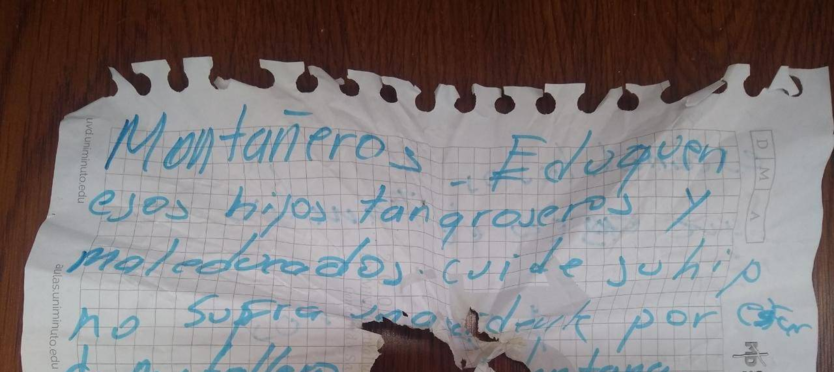 Montañeros - Eduquen
esos hijos tan groseros y
maleducados. cuide su hijo
no sufra un por
D M A
uvd.uniminuto.edu
aulas.uniminuto.edu